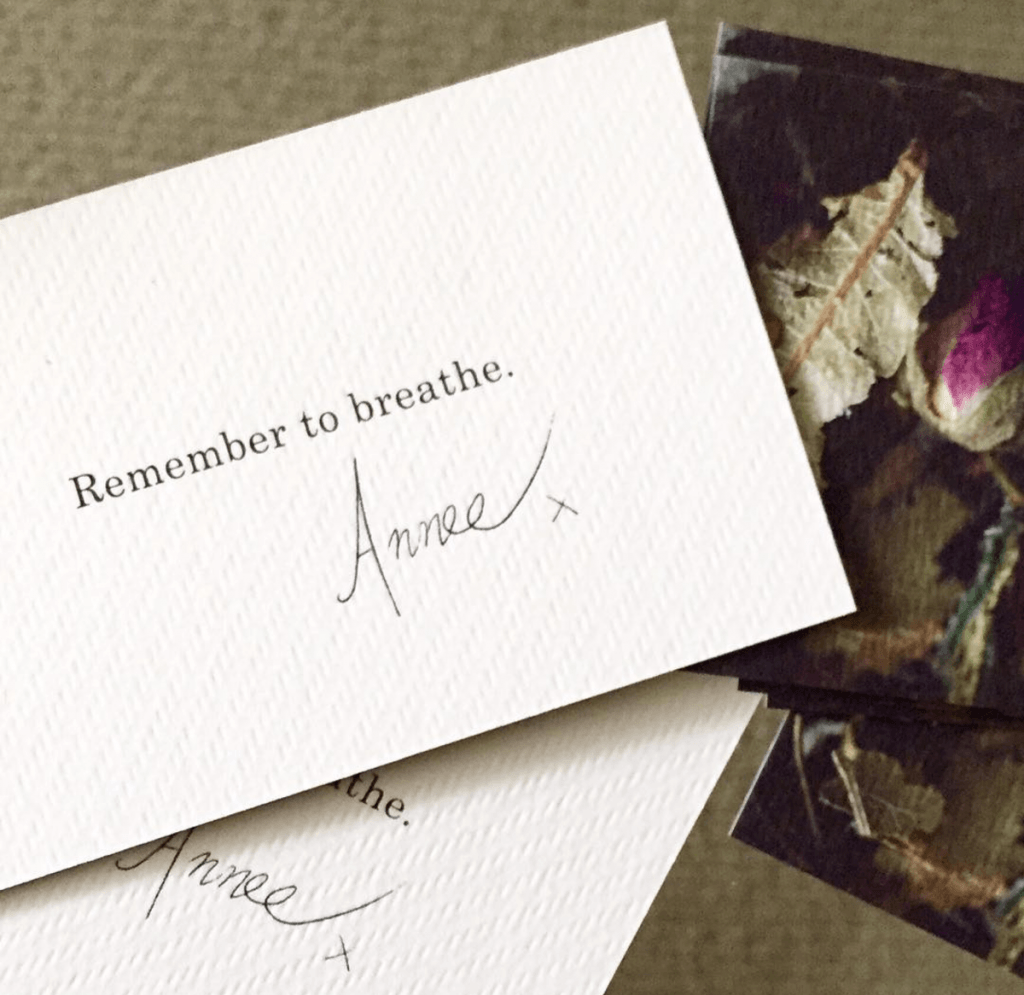 Remember to breathe.
Annee x
athe.
Annee x